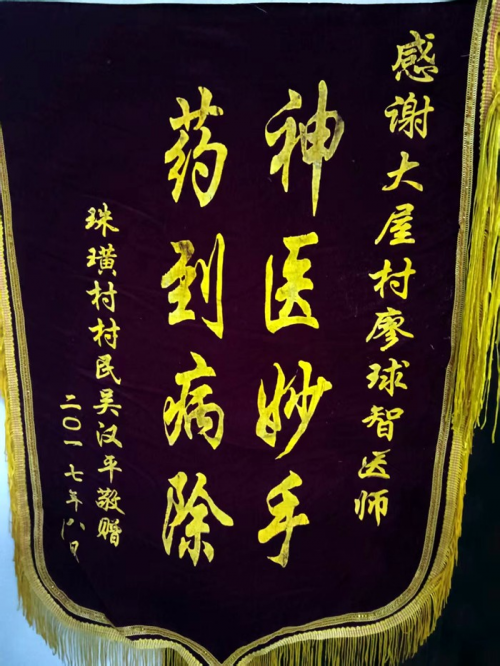 感谢大屋村廖球智医师
神医妙手
药到病除
珠璜村村民吴汉平敬赠
二〇一七年八月